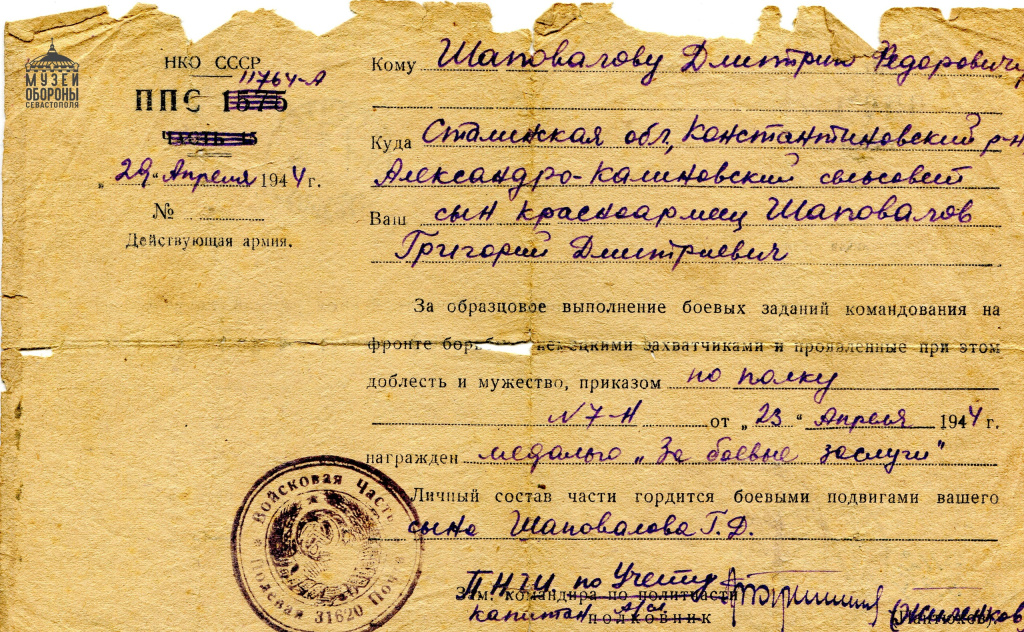 МУЗЕЙ
ОБОРОНЫ
СЕВАСТОПОЛЯ
НКО СССР
11764-А
ППС 1575
часть 15
"29" Апреля 1944 г.
№
Действующая армия.
Кому Шаповалову Дмитрию Федоровичу
Куда Сталинская обл., Константиновский р-н
Александро-Калиновский сельсовет
Ваш сын красноармеец Шаповалов
Григорий Дмитриевич
За образцовое выполнение боевых заданий командования на
фронте немецкими захватчиками и проявленные при этом
доблесть и мужество, приказом по полку
№7-Н от "23" Апреля 1944 г.
награжден медалью "За боевые заслуги"
Личный состав части гордится боевыми подвигами вашего
сына Шаповалова Г.Д.
ПНШ по Учету
Зам. командира по политчасти
капитан а/с
полковник
Войсковая Часть
Полевая 31620 Почта